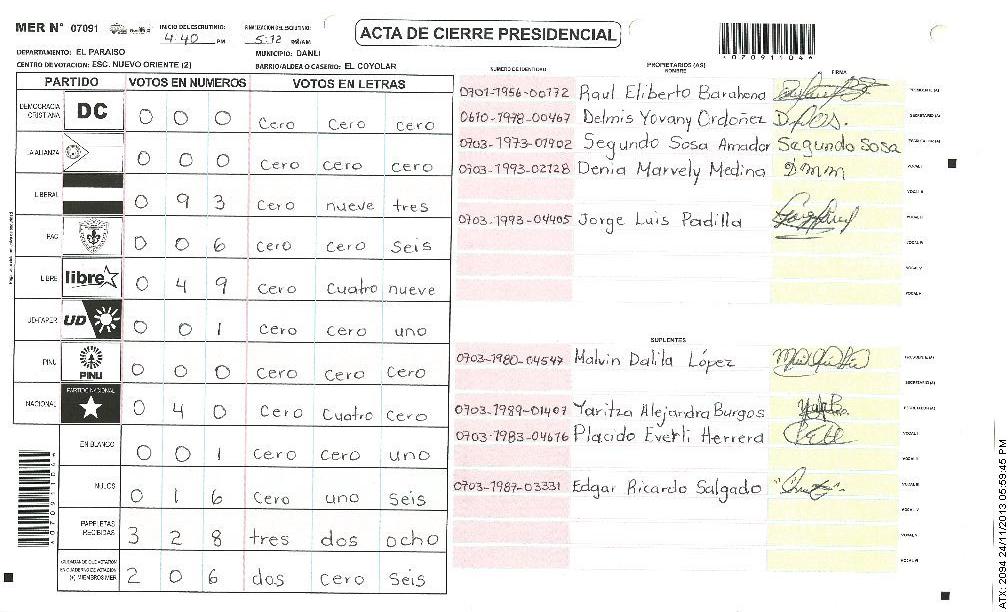 MER N° 07091
INICIO DEL ESCRUTINIO: 4:40 PM
FINALIZACION DEL ESCRUTINIO: 5:12 PM/AM
ACTA DE CIERRE PRESIDENCIAL
*07091104*
DEPARTAMENTO: EL PARAISO
MUNICIPIO: DANLI
CENTRO DE VOTACION: ESC. NUEVO ORIENTE (2)
BARRIO/ALDEA O CASERIO: EL COYOLAR
PARTIDO VOTOS EN NUMEROS VOTOS EN LETRAS
DEMOCRACIA CRISTIANA DC 0 0 0 Cero Cero cero
LA ALIANZA 0 0 0 cero cero cero
LIBERAL 0 9 3 Cero nueve tres
PAC 0 0 6 cero cero Seis
LIBRE libre 0 4 9 Cero Cuatro nueve
UD-FAPER UD 0 0 1 Cero cero uno
PINU PINU 0 0 0 Cero Cero Cero
NACIONAL PARTIDO NACIONAL 0 4 0 Cero Cuatro Cero
EN BLANCO 0 0 1 cero cero uno
NULOS 0 1 6 Cero uno seis
PAPELETAS RECIBIDAS 3 2 8 tres dos ocho
(+) MIEMBROS MER 2 0 6 dos cero seis
*07091104*
NUMERO DE IDENTIDAD PROPIETARIOS (AS) NOMBRE FIRMA
0701-1956-00172 Raul Eliberto Barahona PRESIDENTE (A)
0610-1978-00467 Delmis Yovany Ordoñez SECRETARIO (A)
0703-1973-01902 Segundo Sosa Amador Segundo Sosa ESCRUTADOR (A)
0703-1993-02128 Denia Marvely Medina DMM VOCAL I
VOCAL II
0703-1993-04405 Jorge Luis Padilla VOCAL III
VOCAL IV
VOCAL V
SUPLENTES
0703-1980-04547 Malvin Dalila López PRESIDENTE (A)
SECRETARIO (A)
0703-1989-01407 Yaritza Alejandra Burgos ESCRUTADOR (A)
0703-1983-04676 Placido Everli Herrera VOCAL I
VOCAL II
0703-1987-03331 Edgar Ricardo Salgado VOCAL III
VOCAL IV
VOCAL V
ATX: 2094 24/11/2013 05:59:45 PM